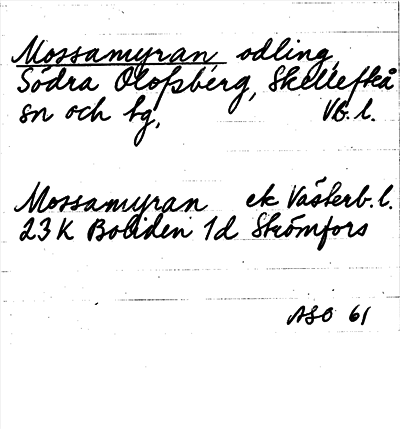 Mossamyran, odling,
Södra Olofsberg, Skellefteå
sn och tg. Vb. l.
Mossamyran ek Västerb. l.
23 K Boliden 1d Strömfors
ASO 61